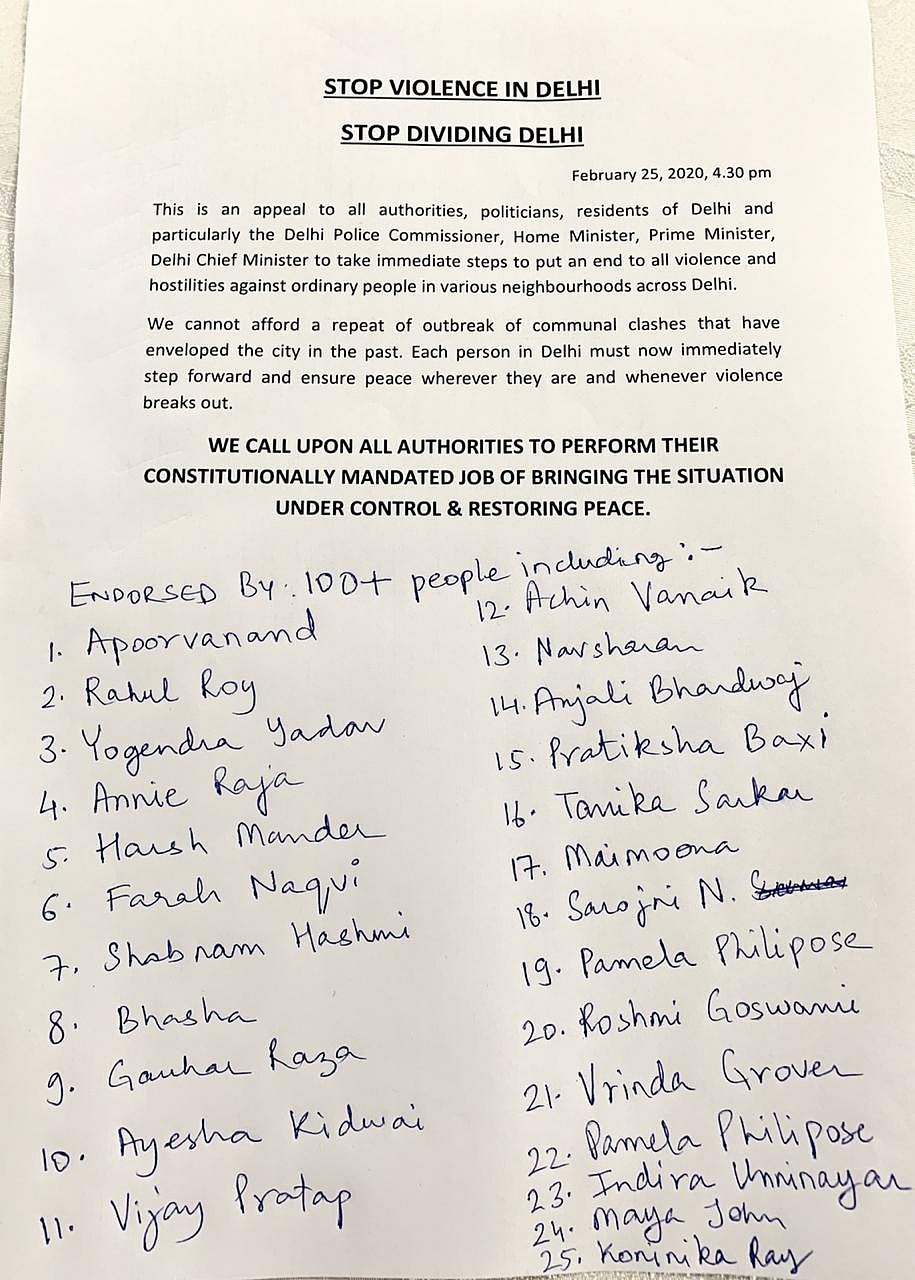 STOP VIOLENCE IN DELHI
STOP DIVIDING DELHI
February 25, 2020, 4.30 pm
This is an appeal to all authorities, politicians, residents of Delhi and
particularly the Delhi Police Commissioner, Home Minister, Prime Minister,
Delhi Chief Minister to take immediate steps to put an end to all violence and
hostilities against ordinary people in various neighbourhoods across Delhi.
We cannot afford a repeat of outbreak of communal clashes that have
enveloped the city in the past. Each person in Delhi must now immediately
step forward and ensure peace wherever they are and whenever violence
breaks out.
WE CALL UPON ALL AUTHORITIES TO PERFORM THEIR
CONSTITUTIONALLY MANDATED JOB OF BRINGING THE SITUATION
UNDER CONTROL & RESTORING PEACE.
ENDORSED BY: 100+ people including :-
1. Apoorvanand
2. Rahul Roy
3. Yogendra Yadav
4. Annie Raja
5. Harsh Mander
6. Farah Naqvi
7. Shabnam Hashmi
8. Bhasha
9. Gauhar Raza
10. Ayesha Kidwai
11. Vijay Pratap
12. Achin Vanaik
13. Navsharan
14. Anjali Bhardwaj
15. Pratiksha Baxi
16. Tanika Sarkar
17. Maimoona
18. Sarojni N.
19. Pamela Philipose
20. Roshmi Goswami
21. Vrinda Grover
22. Pamela Philipose
23. Indira Unninayar
24. Maya John
25. Koninika Ray